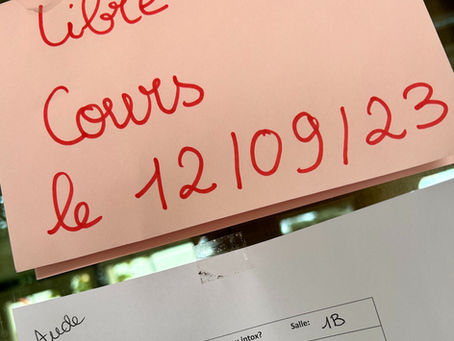 Libre
Cours
le 12/09/23
Aude
intox?
Salle: 1B